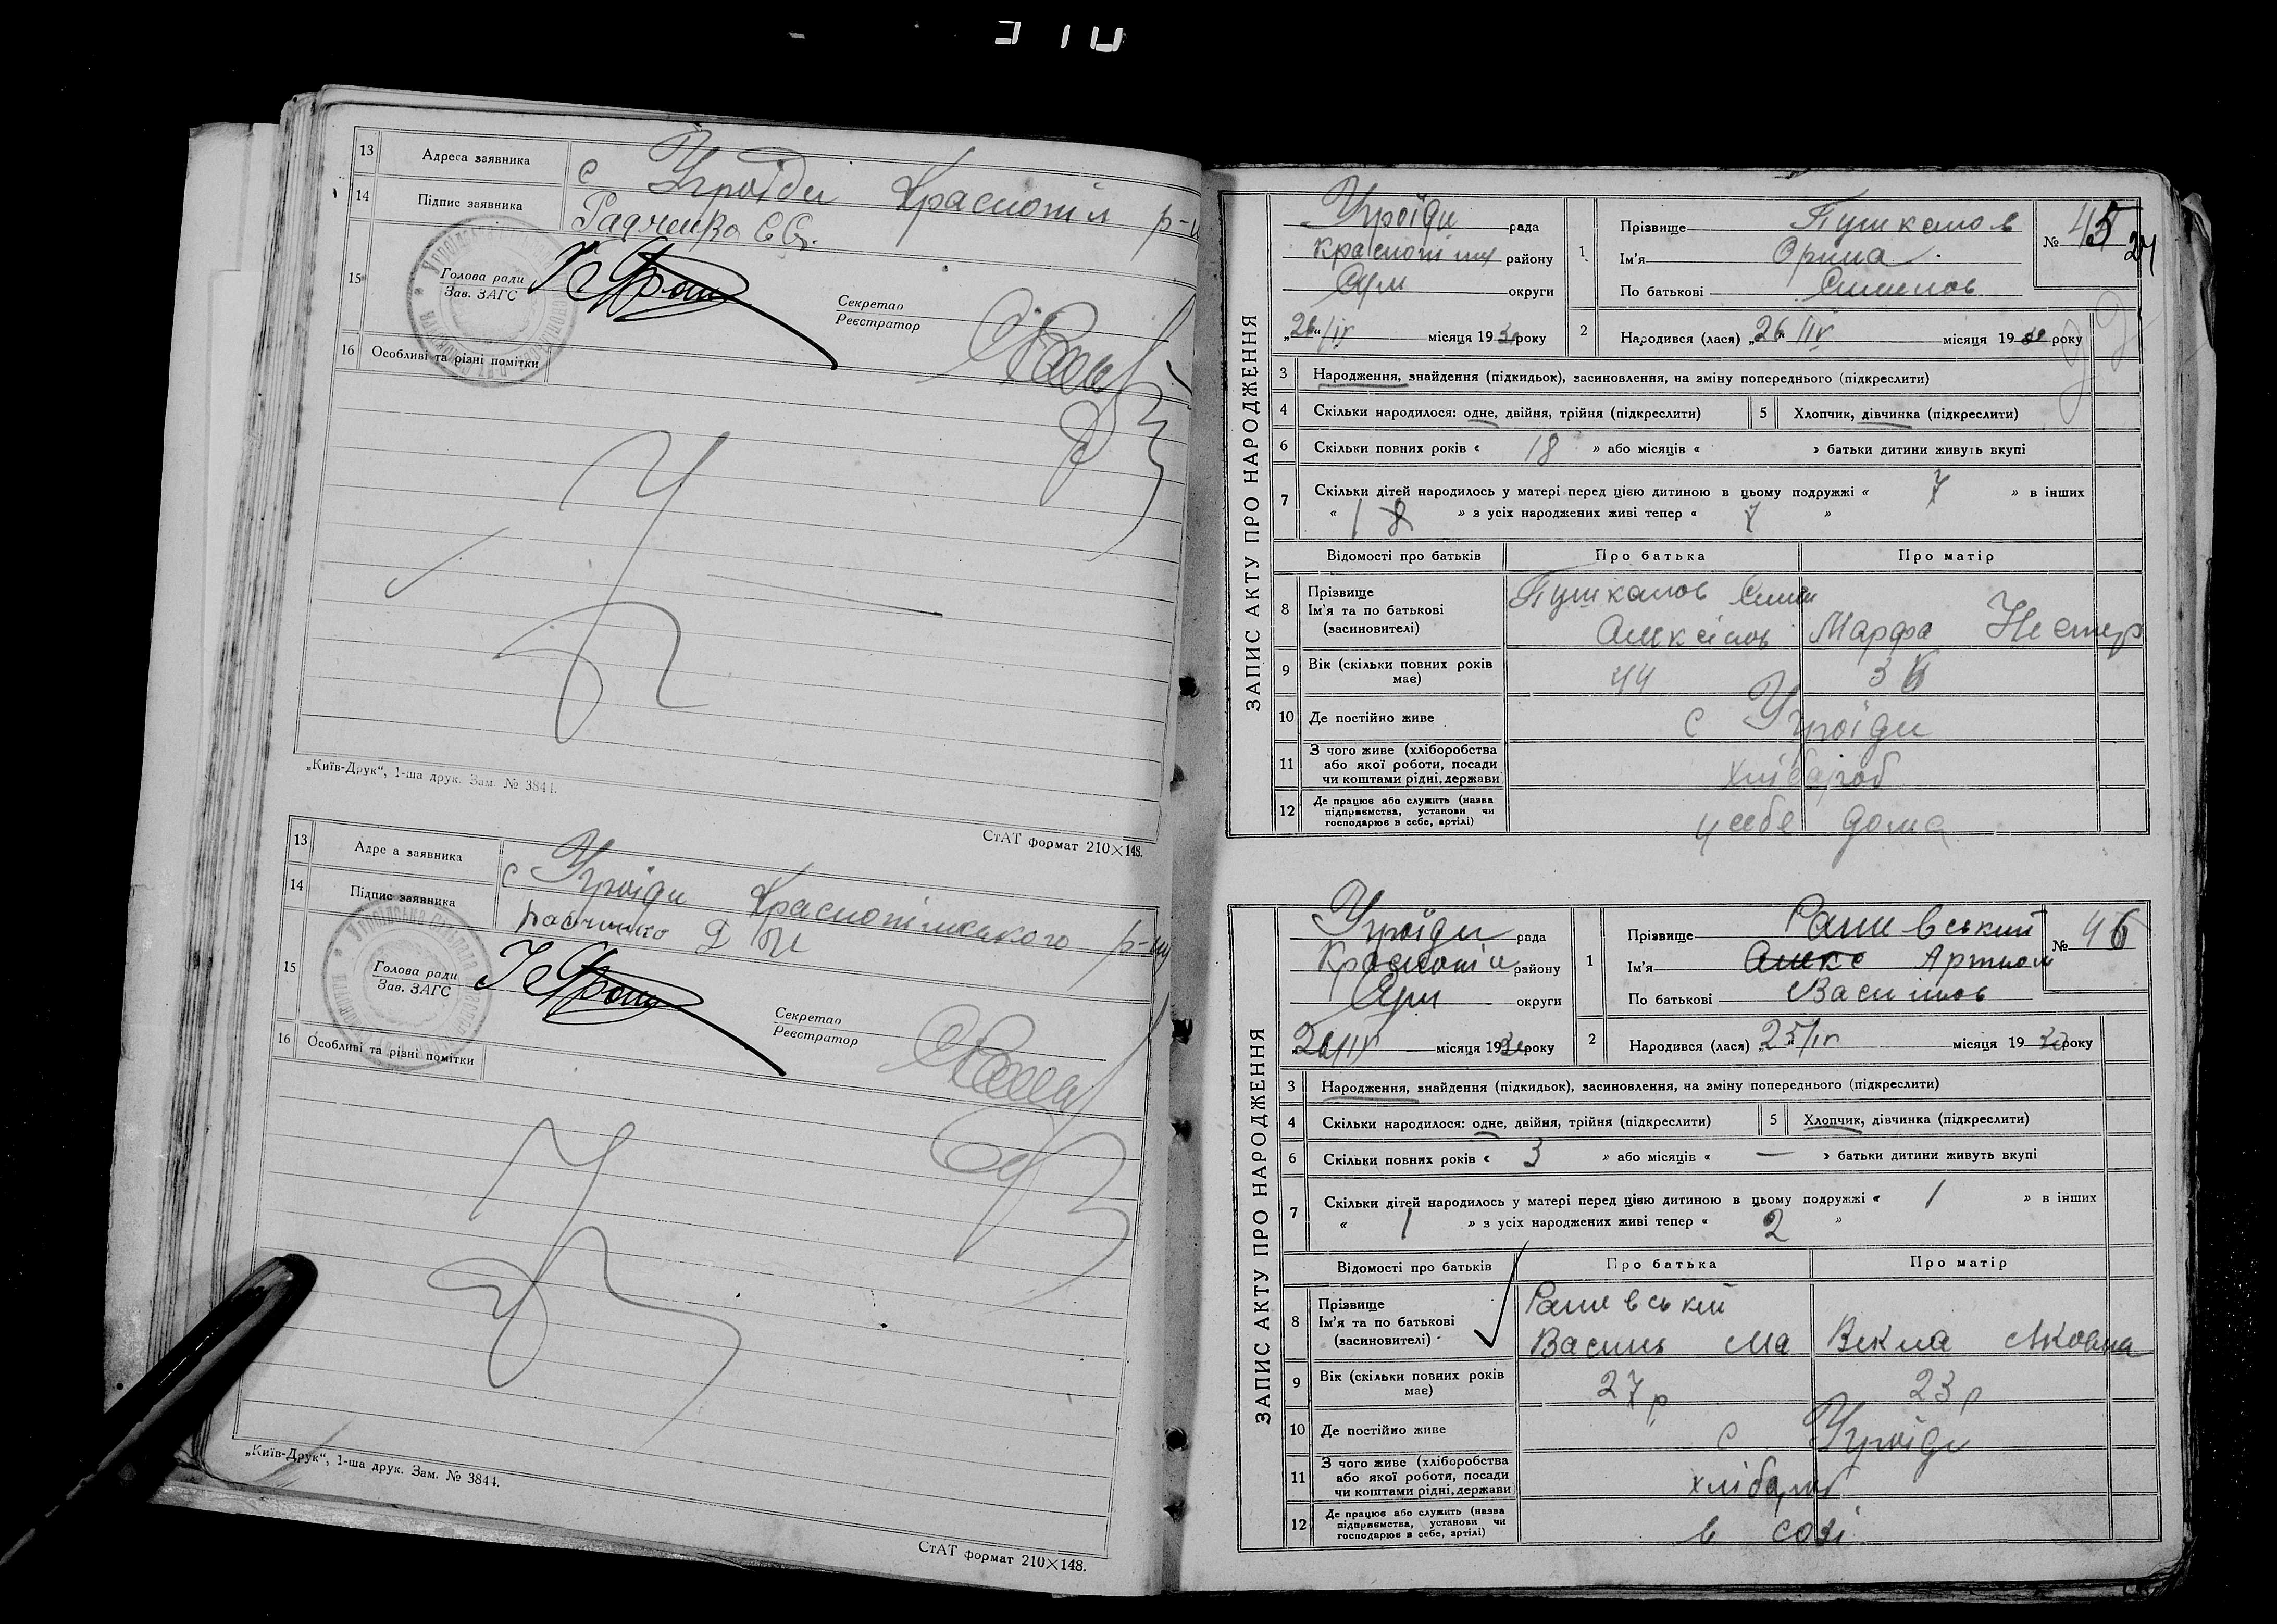 13 Адреса заявника с Угроїди Краснопіл р-н
14 Підпис заявника Радченко Є Є.
15 Голова ради
Зав. ЗАГС
Секретар
Реєстратор
16 Особливі та різні помітки
„Київ-Друк“, 1-ша друк. Зам. № 3844.
СтАТ формат 210×148.
13 Адре а заявника с Угроїди Краснопільского р-ну
14 Підпис заявника
15 Голова ради
Зав. ЗАГС
Секретар
Реєстратор
16 Особливі та різні помітки
„Київ-Друк“, 1-ша друк. Зам. № 3844.
СтАТ формат 210×148.
ЗАПИС АКТУ ПРО НАРОДЖЕННЯ
Угроїди рада
району
Сум округи
„26“/IV місяця 1930 року
1 Прізвище
Ім’я Орина
По батькові
№ 45
24
2 Народився (лася) „26“/IV місяця 1930 року
3 Народження, знайдення (підкидьок), засиновлення, на зміну попереднього (підкреслити)
4 Скільки народилося: одне, двійня, трійня (підкреслити) 5 Хлопчик, дівчинка (підкреслити)
6 Скільки повних років « 18 » або місяців « » батьки дитини живуть вкупі
7 Скільки дітей народилось у матері перед цією дитиною в цьому подружжі « 7 » в інших
« » з усіх народжених живі тепер « »
Відомості про батьків Про батька Про матір
8 Прізвище
Ім’я та по батькові
(засиновителі) Марфа Нестер
9 Вік (скільки повних років має) 44
10 Де постійно живе с Угроїди
11 З чого живе (хліборобства або якої роботи, посади чи коштами рідні, держави) хлібароб
12 Де працює або служить (назва підприємства, установи чи господарює в себе, артілі) у себе дома
ЗАПИС АКТУ ПРО НАРОДЖЕННЯ
Угроїди рада
Краснопіл району
Сум округи
„26/IV місяця 1930 року
1 Прізвище Рашевський
Ім’я Артиом
По батькові Васильов
№ 46
2 Народився (лася) „25/IV місяця 1930 року
3 Народження, знайдення (підкидьок), засиновлення, на зміну попереднього (підкреслити)
4 Скільки народилося: одне, двійня, трійня (підкреслити) 5 Хлопчик, дівчинка (підкреслити)
6 Скільки повних років « 3 » або місяців « — » батьки дитини живуть вкупі
7 Скільки дітей народилось у матері перед цією дитиною в цьому подружжі « 1 » в інших
« 1 » з усіх народжених живі тепер « 2 »
Відомості про батьків Про батька Про матір
8 Прізвище Рашевський
Ім’я та по батькові
(засиновителі) Василь Ма Векла Яковна
9 Вік (скільки повних років має) 27 р 23 р
10 Де постійно живе с Угроїди
11 З чого живе (хліборобства або якої роботи, посади чи коштами рідні, держави) хлібароб
12 Де працює або служить (назва підприємства, установи чи господарює в себе, артілі) в созі